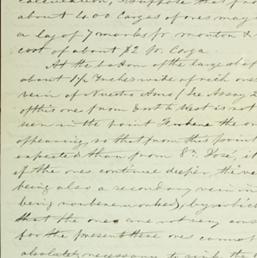 calculation, I suppose that from
about 400 Cargas of ores may
a ley of 7 marks pr monton &
cost of about $2 pr Carga
At the bottom of the largest of
about 1½ Inches wide of rich ore
vein of Nuestra Ama (See Assay 2
of this one from East to West is not
seen in the point where the
appearing, so that from this point
expected than from Sn José, it
if the ores continue deeper, the
being also a secondary vein in
being worked), by which
that the ores are not very cons
for the present these ores cannot
absolutely necessary to sink the